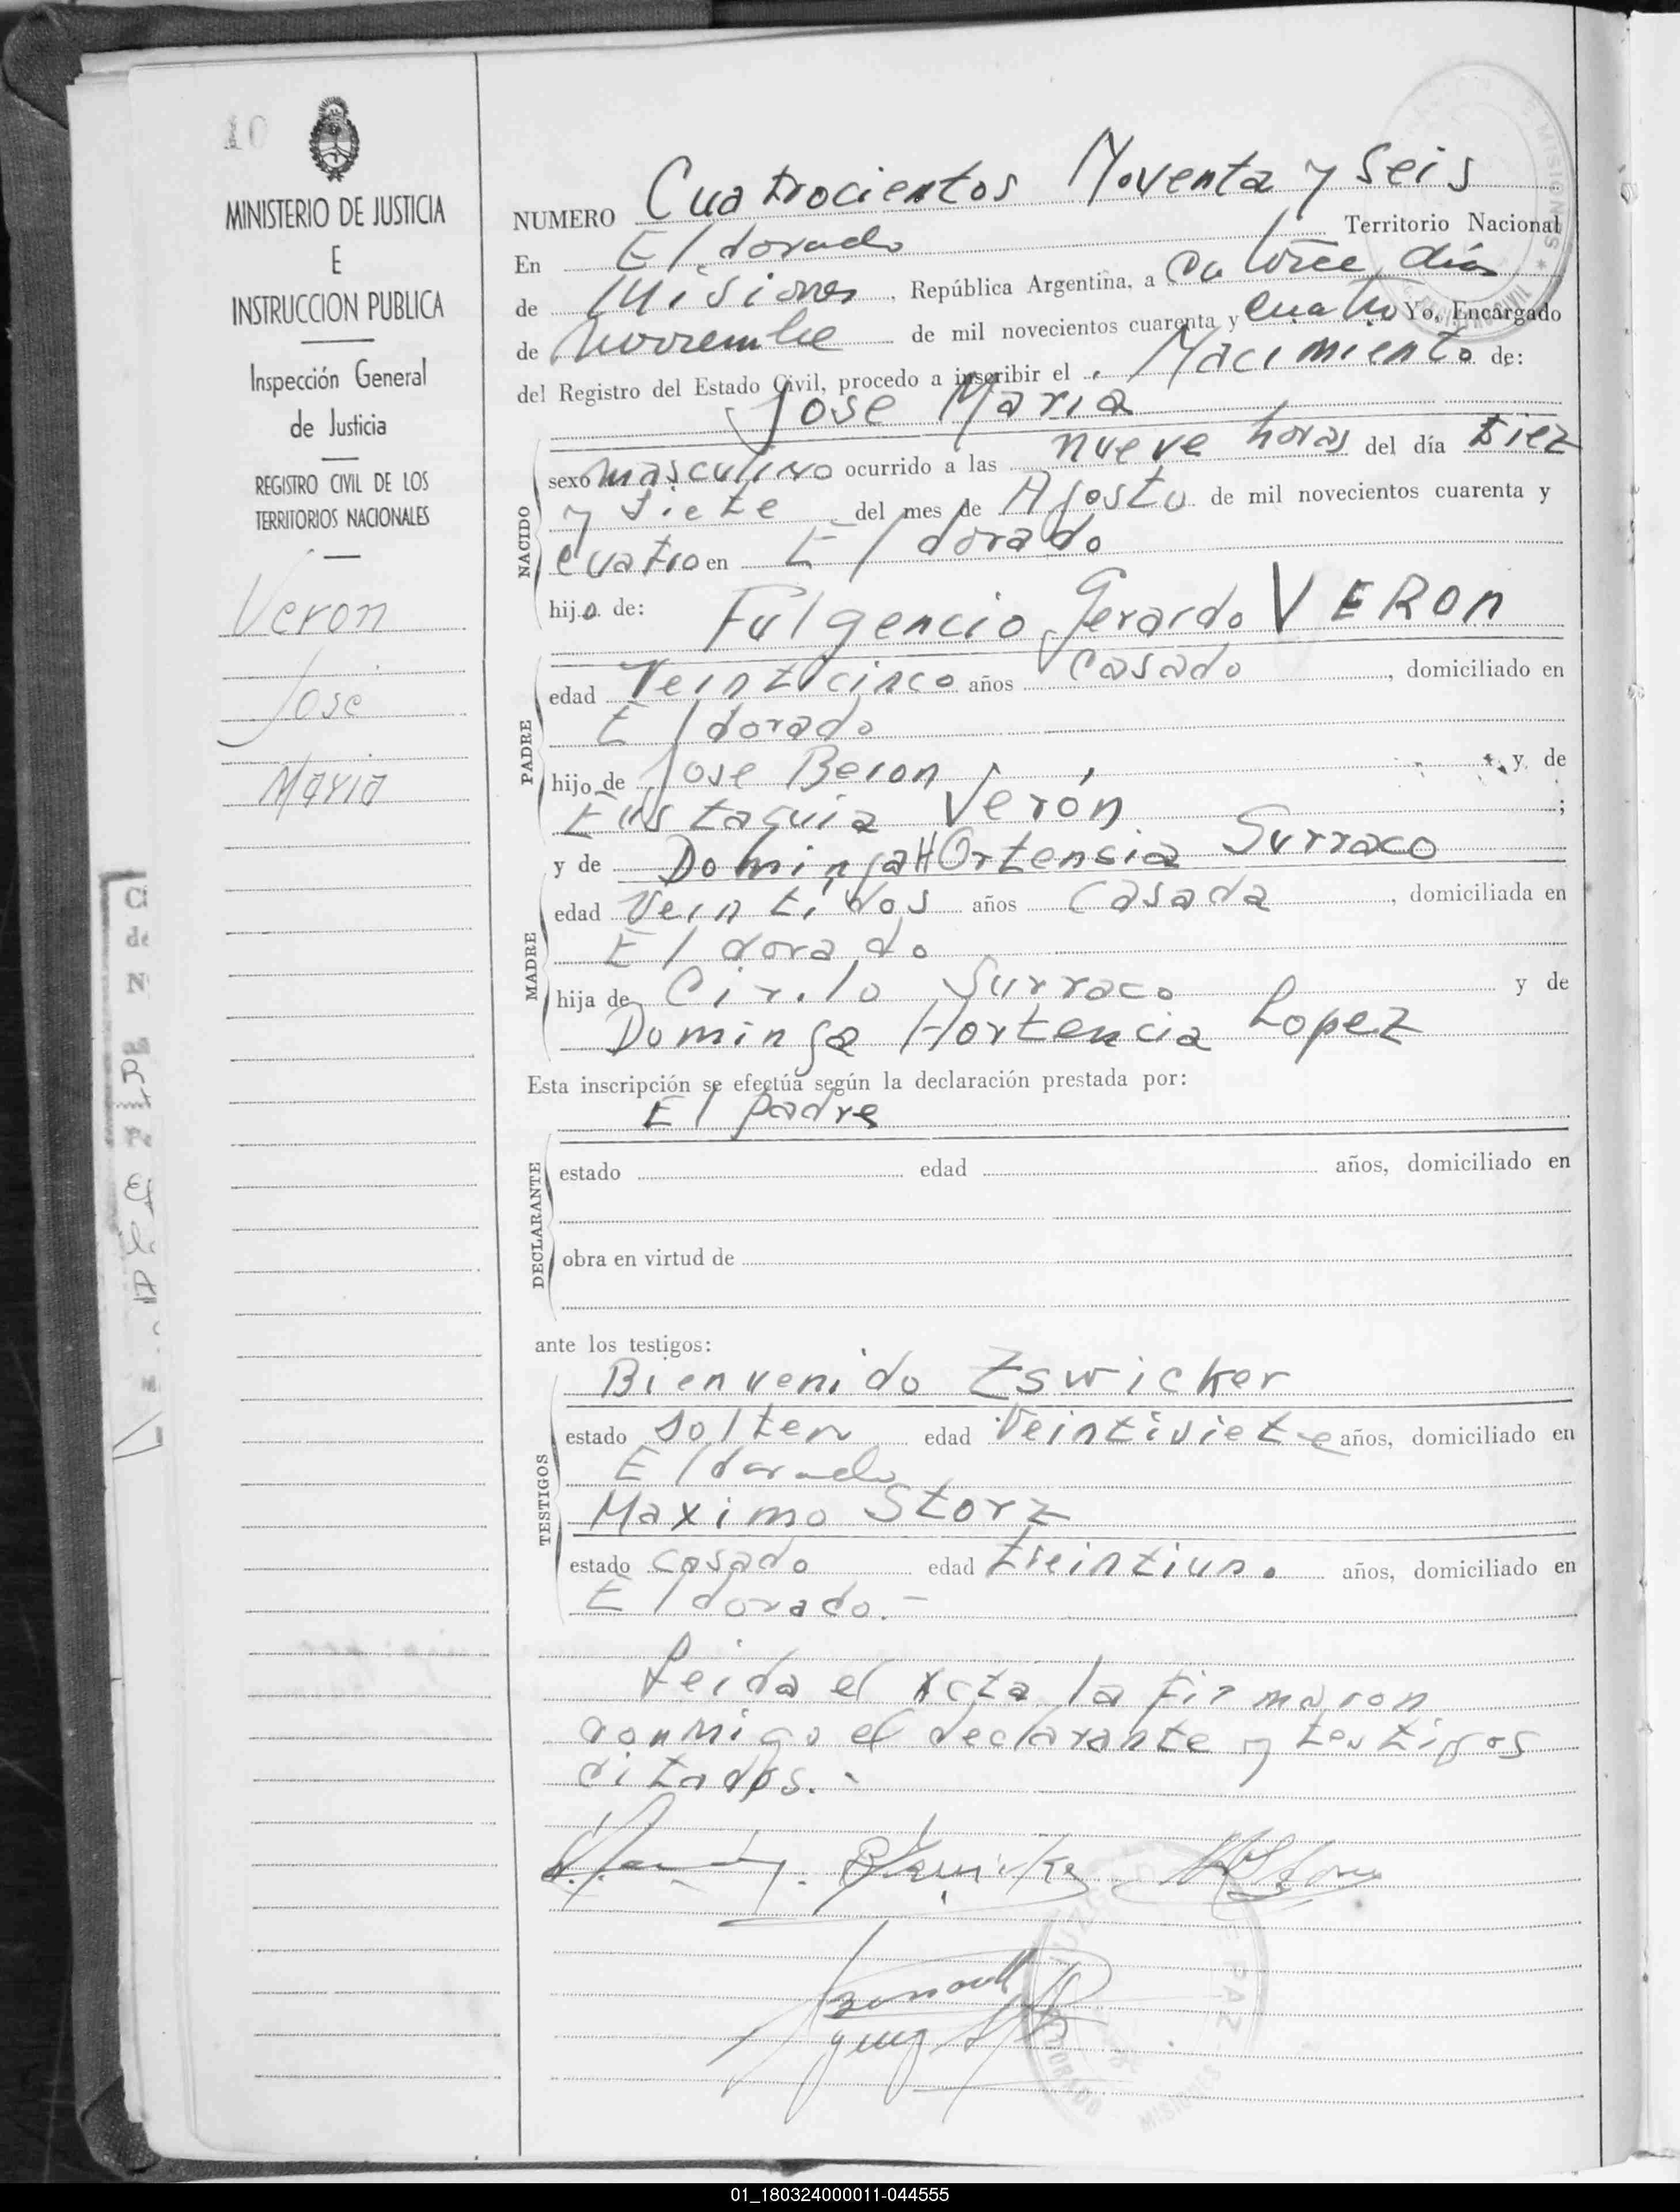 10
MINISTERIO DE JUSTICIA
E
INSTRUCCION PUBLICA
Inspección General
de Justicia
REGISTRO CIVIL DE LOS
TERRITORIOS NACIONALES
Veron
Jose
Maria
NUMERO Cuatrocientos Noventa y Seis
En Eldorado Territorio Nacional
de Misiones, República Argentina, a Catorce días
de Noviembre de mil novecientos cuarenta y cuatro Yo, Encargado
del Registro del Estado Civil, procedo a inscribir el Nacimiento de:
Jose Maria
NACIDO
sexo masculino ocurrido a las nueve horas del día Diez
y siete del mes de Agosto de mil novecientos cuarenta y
cuatro en Eldorado
hijo de: Fulgencio Gerardo VERON
PADRE
edad Veinticinco años Casado, domiciliado en
Eldorado
hijo de Jose Beron y de
Eustaquia Verón;
y de Dominga HOrtensia Surraco
MADRE
edad Veintidos años Casada, domiciliada en
Eldorado
hija de Cirilo Surraco y de
Dominga Hortencia Lopez
Esta inscripción se efectúa según la declaración prestada por:
El padre
DECLARANTE
estado edad años, domiciliado en
obra en virtud de
ante los testigos:
TESTIGOS
Bienvenido Zswicker
estado soltero edad Veintisiete años, domiciliado en
Eldorado
Maximo Storz
estado casado edad treintiuno años, domiciliado en
Eldorado.-
Leida el acta la firmaron
conmigo el declarante y testigos
citados.-
PAZ
MISIONES
01_180324000011-044555